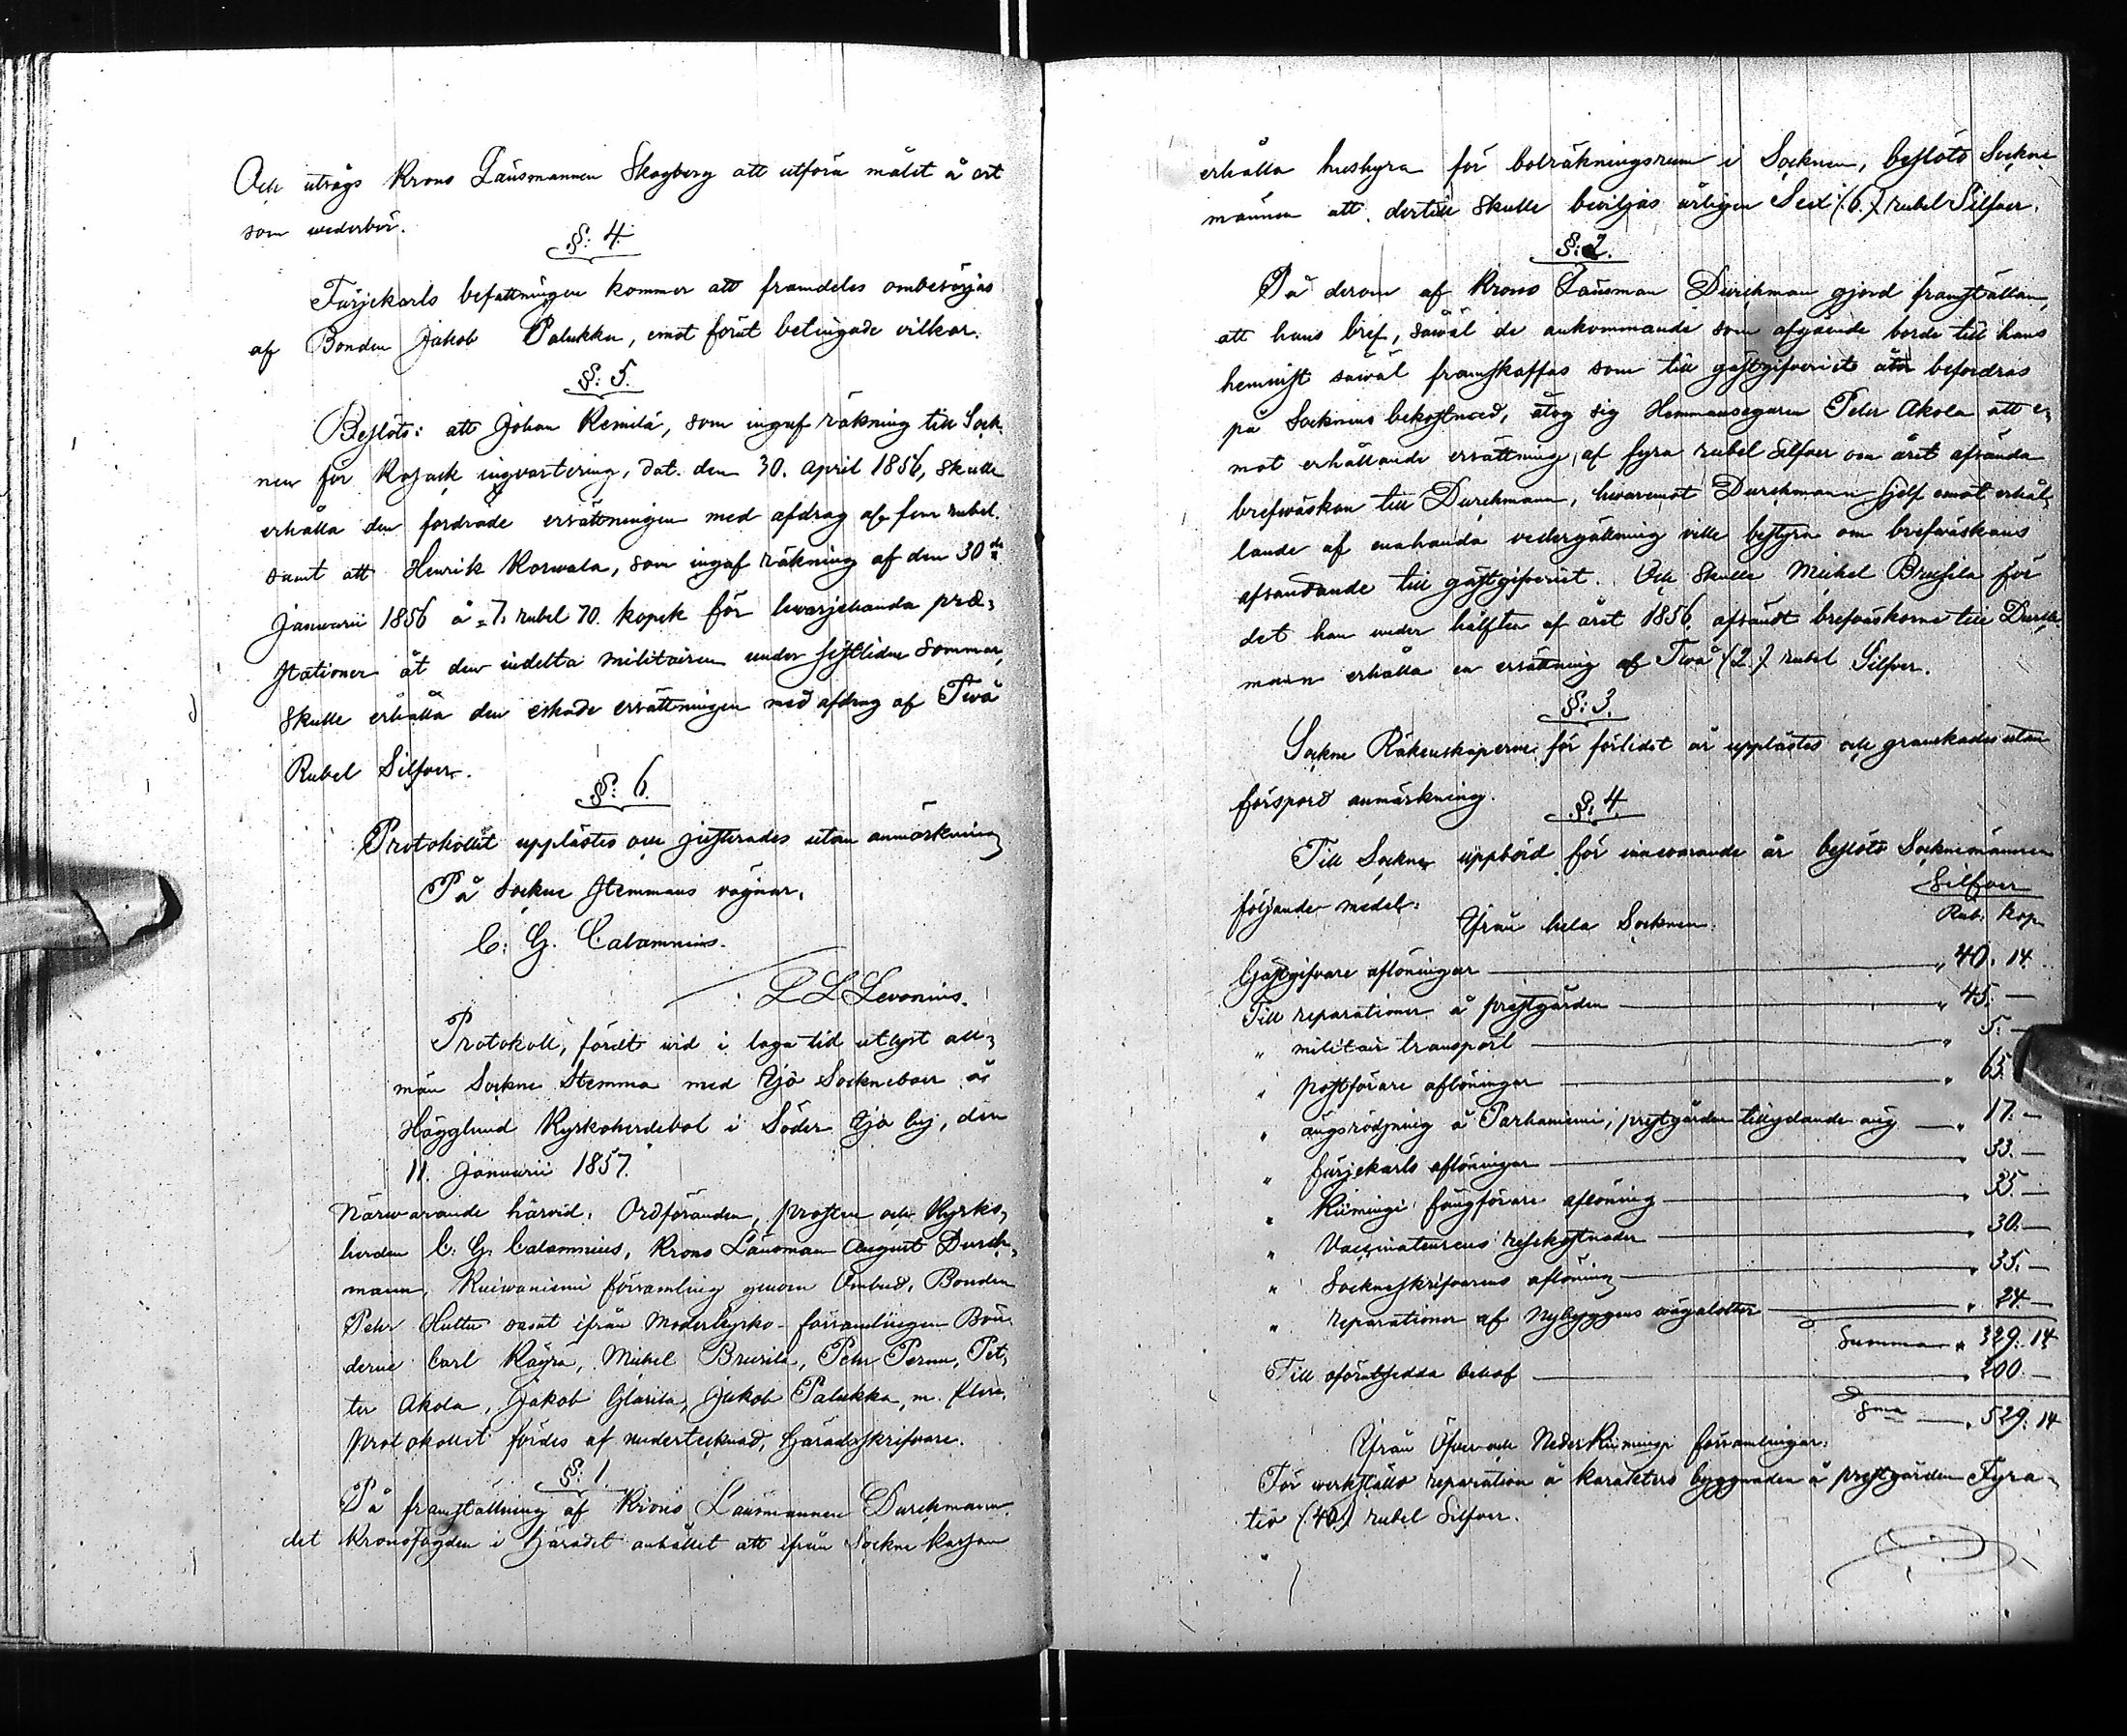 Och utsågs Krono Länsmannen Skogberg att utföra målet å ort
som wederbör.
§: 4.
Färjekarls befattningen kommer att framdeles ombesörjas
af Bonden Jakob Palukka, emot förut betingade vilkor.
§: 5.
Beslöts: att Johan Remilä, som ingaf räkning till Sock-
nen för Kosack inqvartering, dat. den 30. April 1856, skulle
erhålla den fordrade ersättningen med afdrag af fem rubel.
samt att Henrik Korwala, som ingaf räkning af den 30de
Januarii 1856 å 7. rubel 70. kopek för hwarjehanda præ-
stationer åt den indelta militairen under sistlidne sommar,
skulle erhålla den äskade ersättningen med afdrag af Twå
Rubel Silfwer.
§: 6.
Protokollet upplästes och justerades utan anmärkning
På Sockne Stemmans vägnar.
C: G. Calamnius.
L L Levonius.
Protokoll, fördt wid i laga tid utlyst all-
män Sockne Stemma med Ijo Sockneboer å
Hägglund Kyrkoherdebol i Söder Ijo by, den
11. Januarii 1857.
Närwarande härvid: Ordföranden, prosten och Kyrko-
herden C: G: Calamnius, Krono Länsman August Durch-
mann, Kuiwaniemi församling genom Ombud, Bonden
Pehr Huttu samt ifrån Moderkyrko-församlingen Bön-
derne Carl Käyrä, Mickel Bruusila, Pehr Pernu, Pet-
ter Akola, Jakob Glarila, Jakob Palukka, m. flere,
protokollet fördes af undertecknad, Häradsskrifware.
§: 1
På framställning af Krono Länsmannen Durchmann
det Kronofogden i Häradet anhållet att ifrån Sockne kassan
erhålla hushyra för bolräkningsrum i Socknen, beslöts Sockne-
männen att dertill skulle beviljas årligen Sex (6.) rubel Silfver.
§: 2.
På derom af Krono Länsman Durchman gjord framställan,
att hans bref, såwäl de ankommande som afgående borde till hans
hemvist såwäl framskaffas som till gästgifveriet åter befordras
på Socknens bekostnad, åtog sig Hemmansegaren Pehr Akola att e-
mot erhållande ersättning af fyra rubel silfver om året afsända
brefwäskan till Durchmann, hwaremot Durchmann sjelf emot erhål-
lande af enahanda vedergällning ville bestyra om brefwäskans
afsändande till gästgifveriet. Och skulle Mickel Bruusila för
det han under hälften af året 1856. afsändt brefväskorna till Durch-
mann erhålla en ersättning af Twå (2.) rubel Silfver.
§: 3.
Sockne Räkenskaperne för förlidet år upplästes och granskades utan
förspord anmärkning.
§: 4.
Till Sockne uppbörd för innewarande år beslöts Socknemännen
följande medel:
Silfwer
Ifrån hela Socknen. Rub: Kop
Gästgifvare aflöningar — „ 40. 14
Till reparationer å prestgården — „ 45. —
„ militair transport — „ 5. —
„ postförare aflöningar — „ 65.
„ ängsrödjning å Parhaniemi, prestgården tillydande äng — „ 17. —
„ färjekarls aflöningar — „ 33. —
„ Kiimingi fångförare aflöning — „ 35. —
„ Vaccinateurens resekostnader — „ 30. —
„ Sockneskrifvarens aflöning — „ 35. —
„ reparationer af Nybyggens wägalotter — „ 24. —
Summa „ 329. 14
Till oförutsedda behof — „ 200. —
Sma — „ 529. 14
Ifrån Öfver och Neder Kiimingi församlingar.
För werkställd reparation å karakters byggnaden å prestgården Fyra-
tio (40.) rubel Silfver.